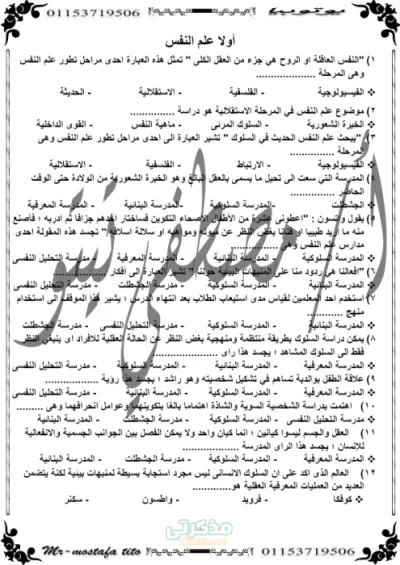 01153719506
يوتوبيا
01153719506
أولا علم النفس
١) "النفس العاقلة او الروح هي جزء من العقل الكلى" تمثل هذه العبارة احدى مراحل تطور علم النفس
وهى المرحلة ....................
الفيسيولوجية - الفلسفية - الاستقلالية - الحديثة
٢) موضوع علم النفس في المرحلة الاستقلالية هو دراسة ....................
الخبرة الشعورية - السلوك المرئى - ماهية النفس - القوى الداخلية
٣) "يبحث علم النفس الحديث في السلوك" تشير العبارة الى احدى مراحل تطور علم النفس وهى
المرحلة ....................
الفيسيولوجية - الارتباط - الفلسفية - الاستقلالية
٤) المدرسة التي سعت الى تحيل ما يسمى بالعقل البالغ وهو الخبرة الشعورية من الولادة حتى الوقت
الحاضر ....................
الجشطلت - المدرسة السلوكية - المدرسة البنائية - المدرسة المعرفية
٥) يقول واتسون : "اعطونى عشرة من الأطفال الاصحاء التكوين فساختار احدهم جزافا ثم ادربه ؛ فأصنع
منه ما أريد طبيبا او فنانا بغض النظر عن ميوله ومواهبه او سلالة اسلافه" تجسد هذه المقولة احدى
مدارس علم النفس وهى ....................
المدرسة السلوكية - المدرسة البنائية - المدرسة المعرفية - مدرسة التحليل النفسى
٦) "أفعالنا هي ردود منا على المنبهات البيئية حولنا" تشير العبارة الى أفكار ....................
المدرسة البنائية - المدرسة السلوكية - مدرسة الجشطلت - مدرسة التحليل النفسى
٧) استخدم احد المعلمين لقياس مدى استيعاب الطلاب بعد انتهاء الدرس ؛ يشير هذا الموقف الى استخدام
منهج ..........
المدرسة البنائية - المدرسة السلوكية - مدرسة التحليل النفسى - مدرسة الجشطلت
٨) يمكن دراسة السلوك بطريقة منتظمة ومنهجية بغض النظر عن الحالة العقلية للأفراد اى ينبغى النظر
فقط الى السلوك المشاهد ؛ يجسد هذا راى ....................
المدرسة المعرفية - المدرسة البنائية - المدرسة السلوكية - مدرسة التحليل النفسى
٩) علاقة الطفل بوالدية تساهم في تشكيل شخصيته وهو راشد ؛ يجسد هذا رؤية ....................
المدرسة المعرفية - المدرسة البنائية - المدرسة السلوكية - مدرسة التحليل النفسى
١٠) اهتمت بدراسة الشخصية السوية والشاذة اهتماما بالغا بتكوينهما وعوامل انحرافهما وهى ..........
مدرسة التحليل النفسى - المدرسة السلوكية - مدرسة الجشطلت - المدرسة البنائية
١١) العقل والجسم ليسوا كيانين ؛ انما كيان واحد ولا يمكن الفصل بين الجوانب الجسمية والانفعالية
للإنسان ؛ يجسد هذا الراى ....................
المدرسة المعرفية - المدرسة السلوكية - مدرسة الجشطلت - المدرسة البنائية
١٢) العالم الذى اكد على ان السلوك الانسانى ليس مجرد استجابة بسيطة لمنبهات بيئية لكنة يتضمن
العديد من العمليات المعرفية العقلية هو ....................
كوفكا - فرويد - واطسون - سكنر
أ/ مصطفى تيتو
مذكرتى
Mr-mostafa tito
01153719506